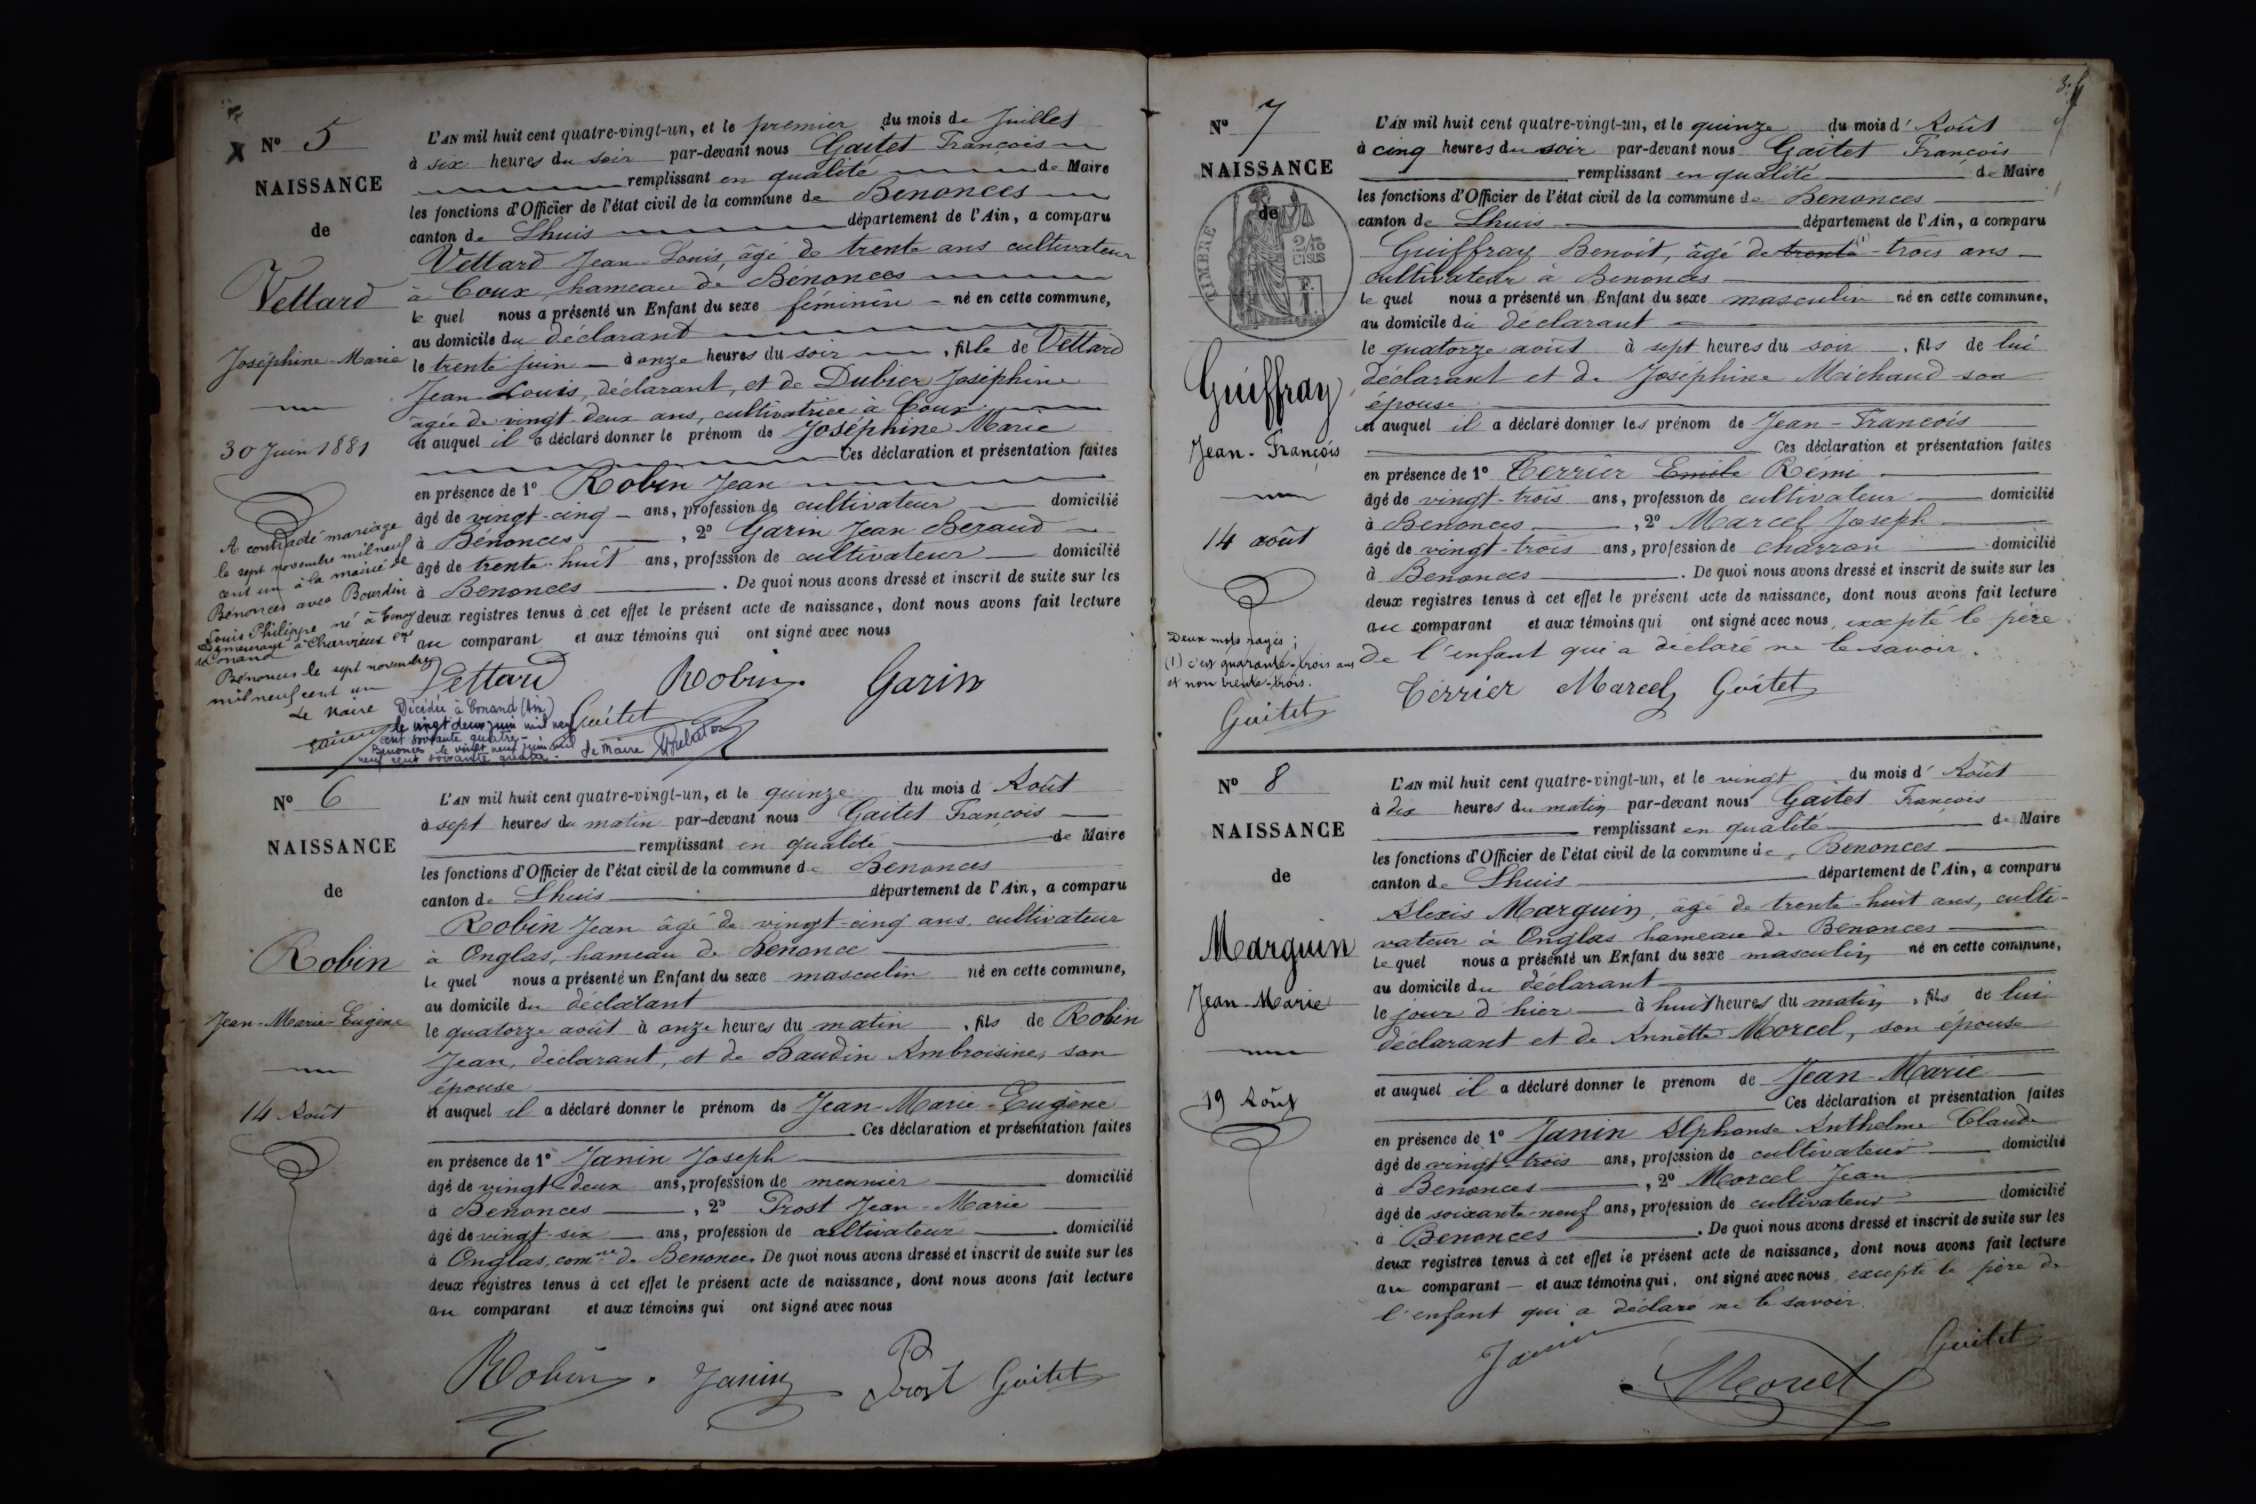 N° 5
NAISSANCE
de
Vettard
Joséphine-Marie
30 Juin 1881
A contracté mariage
le sept novembre mil neuf
cent un à la mairie de
Bénonces avec Bourdin
Louis Philippe né à
demeurant à Charvieux cne
de Conand
Bénonces le sept novembre
mil neuf cent un
Le Maire
L'AN mil huit cent quatre-vingt-un, et le premier du mois de Juillet
à six heures du soir par-devant nous Gaitet François
remplissant en qualité de Maire
les fonctions d'Officier de l'état civil de la commune de Benonces
canton de Lhuis département de l'Ain, a comparu
Vettard Jean-Louis, âgé de trente ans cultivateur
à Coux, hameau de Bénonces
le quel nous a présenté un Enfant du sexe féminin né en cette commune,
au domicile du déclarant
le trente juin à onze heures du soir, fille de Vettard
Jean-Louis, déclarant, et de Dubier Joséphine
âgée de vingt-deux ans, cultivatrice à Coux
et auquel il a déclaré donner le prénom de Joséphine Marie
Ces déclaration et présentation faites
en présence de 1° Robin Jean
âgé de vingt-cinq ans, profession de cultivateur domicilié
à Bénonces, 2° Garin Jean Beraud
âgé de trente-huit ans, profession de cultivateur domicilié
à Benonces. De quoi nous avons dressé et inscrit de suite sur les
deux registres tenus à cet effet le présent acte de naissance, dont nous avons fait lecture
au comparant et aux témoins qui ont signé avec nous
Vettard Robin Garin
Gaitet
Décédée à Conand (Ain)
le vingt deux juin mil neuf
cent soixante quatre -
Benonces le vingt neuf juin mil
neuf cent soixante quatre. Le Maire
N° 6
NAISSANCE
de
Robin
Jean-Marie-Eugène
14 Août
L'AN mil huit cent quatre-vingt-un, et le quinze du mois d'Août
à sept heures du matin par-devant nous Gaitet François
remplissant en qualité de Maire
les fonctions d'Officier de l'état civil de la commune de Benonces
canton de Lhuis département de l'Ain, a comparu
Robin Jean âgé de vingt-cinq ans, cultivateur
à Onglas, hameau de Benonce
le quel nous a présenté un Enfant du sexe masculin né en cette commune,
au domicile du déclarant
le quatorze août à onze heures du matin, fils de Robin
Jean, déclarant, et de Baudin Ambroisine, son
épouse
et auquel il a déclaré donner le prénom de Jean-Marie-Eugène
Ces déclaration et présentation faites
en présence de 1° Janin Joseph
âgé de vingt deux ans, profession de meunier domicilié
à Benonces, 2° Prost Jean-Marie
âgé de vingt-six ans, profession de cultivateur domicilié
à Onglas, comne de Benonce. De quoi nous avons dressé et inscrit de suite sur les
deux registres tenus à cet effet le présent acte de naissance, dont nous avons fait lecture
au comparant et aux témoins qui ont signé avec nous
Robin. Janin Prost Gaitet
N° 7
NAISSANCE
de
TIMBRE
Guiffray
Jean-François
14 août
Deux mots rayés;
(1) c'est quarante-trois ans
et non trente-trois.
Gaitet
L'AN mil huit cent quatre-vingt-un, et le quinze du mois d'Août
à cinq heures du soir par-devant nous Gaitet François
remplissant en qualité de Maire
les fonctions d'Officier de l'état civil de la commune de Benonces
canton de Lhuis département de l'Ain, a comparu
Guiffray Benoit, âgé de trente (1)-trois ans
cultivateur à Benonces
le quel nous a présenté un Enfant du sexe masculin né en cette commune,
au domicile du déclarant
le quatorze août à sept heures du soir, fils de lui
déclarant et de Joséphine Michaud son
épouse
et auquel il a déclaré donner les prénom de Jean-François
Ces déclaration et présentation faites
en présence de 1° Terrier Emile Rémi
âgé de vingt-trois ans, profession de cultivateur domicilié
à Benonces, 2° Marcel Joseph
âgé de vingt-trois ans, profession de charron domicilié
à Benonces. De quoi nous avons dressé et inscrit de suite sur les
deux registres tenus à cet effet le présent acte de naissance, dont nous avons fait lecture
au comparant et aux témoins qui ont signé avec nous, excepté le père
de l'enfant qui a déclaré ne le savoir.
Terrier Marcel Gaitet
N° 8
NAISSANCE
de
Marguin
Jean-Marie
19 Août
L'AN mil huit cent quatre-vingt-un, et le vingt du mois d'Août
à dix heures du matin par-devant nous Gaitet François
remplissant en qualité de Maire
les fonctions d'Officier de l'état civil de la commune de Benonces
canton de Lhuis département de l'Ain, a comparu
Alexis Marguin, âgé de trente-huit ans, culti-
vateur à Onglas hameau de Benonces
le quel nous a présenté un Enfant du sexe masculin né en cette commune,
au domicile du déclarant
le jour d'hier à huit heures du matin, fils de lui
déclarant et de Annette Morcel, son épouse
et auquel il a déclaré donner le prénom de Jean-Marie
Ces déclaration et présentation faites
en présence de 1° Janin Alphonse Anthelme Claude
âgé de vingt-trois ans, profession de cultivateur domicilié
à Benonces, 2° Morcel Jean
âgé de soixante-neuf ans, profession de cultivateur domicilié
à Benonces. De quoi nous avons dressé et inscrit de suite sur les
deux registres tenus à cet effet le présent acte de naissance, dont nous avons fait lecture
au comparant et aux témoins qui, ont signé avec nous, excepté le père de
l'enfant qui a déclaré ne le savoir.
Janin Morcel Gaitet